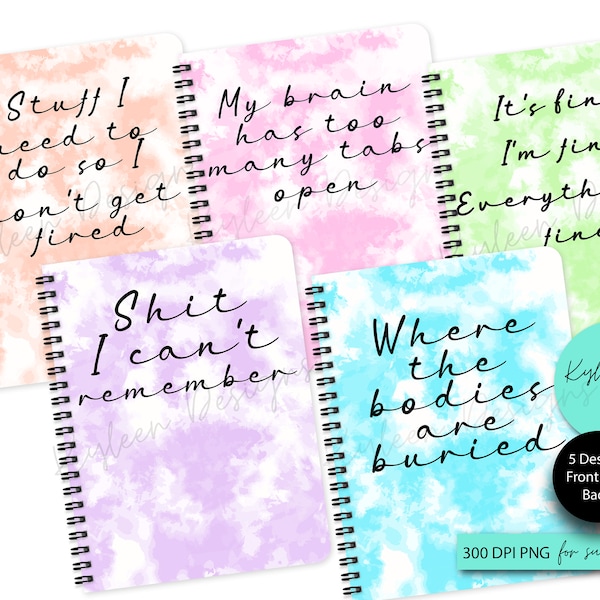 Stuff I
need to
do so I
don't get
fired
My brain
has too
many tabs
open
It's fin
I'm fin
Everyth
fine
Shit
I can't
remember
Where
the
bodies
are
buried
Kyleen Designs
Kyl
5 Des
Front
Bac
300 DPI PNG for su